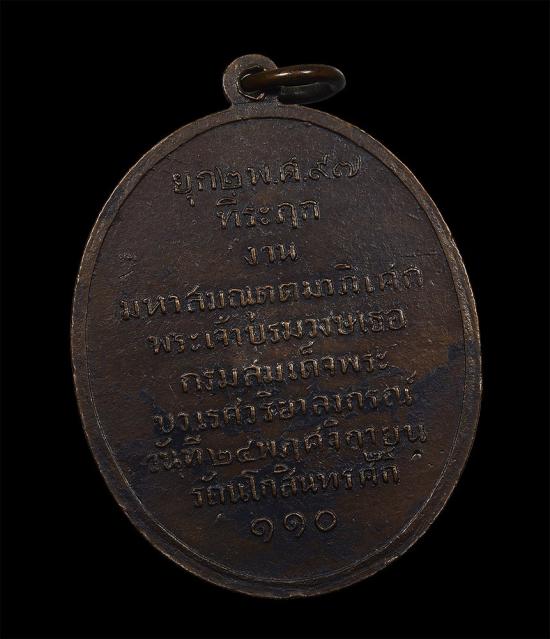 ยุก๒พ.ศ.๙๗
ที่ระฦก
งาน
มหาสมณุตตมาภิเศก
พระเจ้าบรมวงษเธอ
กรมสมเด็จพระ
ปวเรศวริยาลงกรณ์
วันที่๒๔พฤศจิกายน
รัตนโกสินทรศก๊
๑๑๐